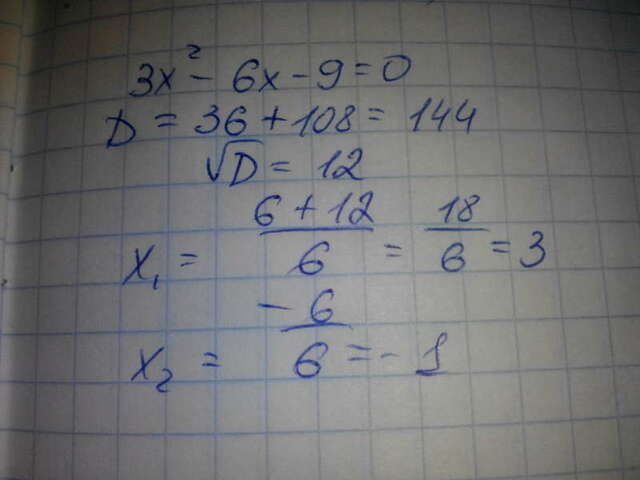 3x² - 6x - 9 = 0
D = 36 + 108 = 144
√D = 12
x₁ = (6 + 12)/6 = 18/6 = 3
x₂ = -6/6 = -1